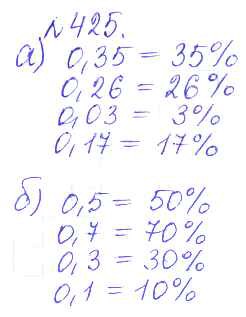 № 425.
а) 0,35 = 35%
0,26 = 26%
0,03 = 3%
0,17 = 17%
б) 0,5 = 50%
0,7 = 70%
0,3 = 30%
0,1 = 10%